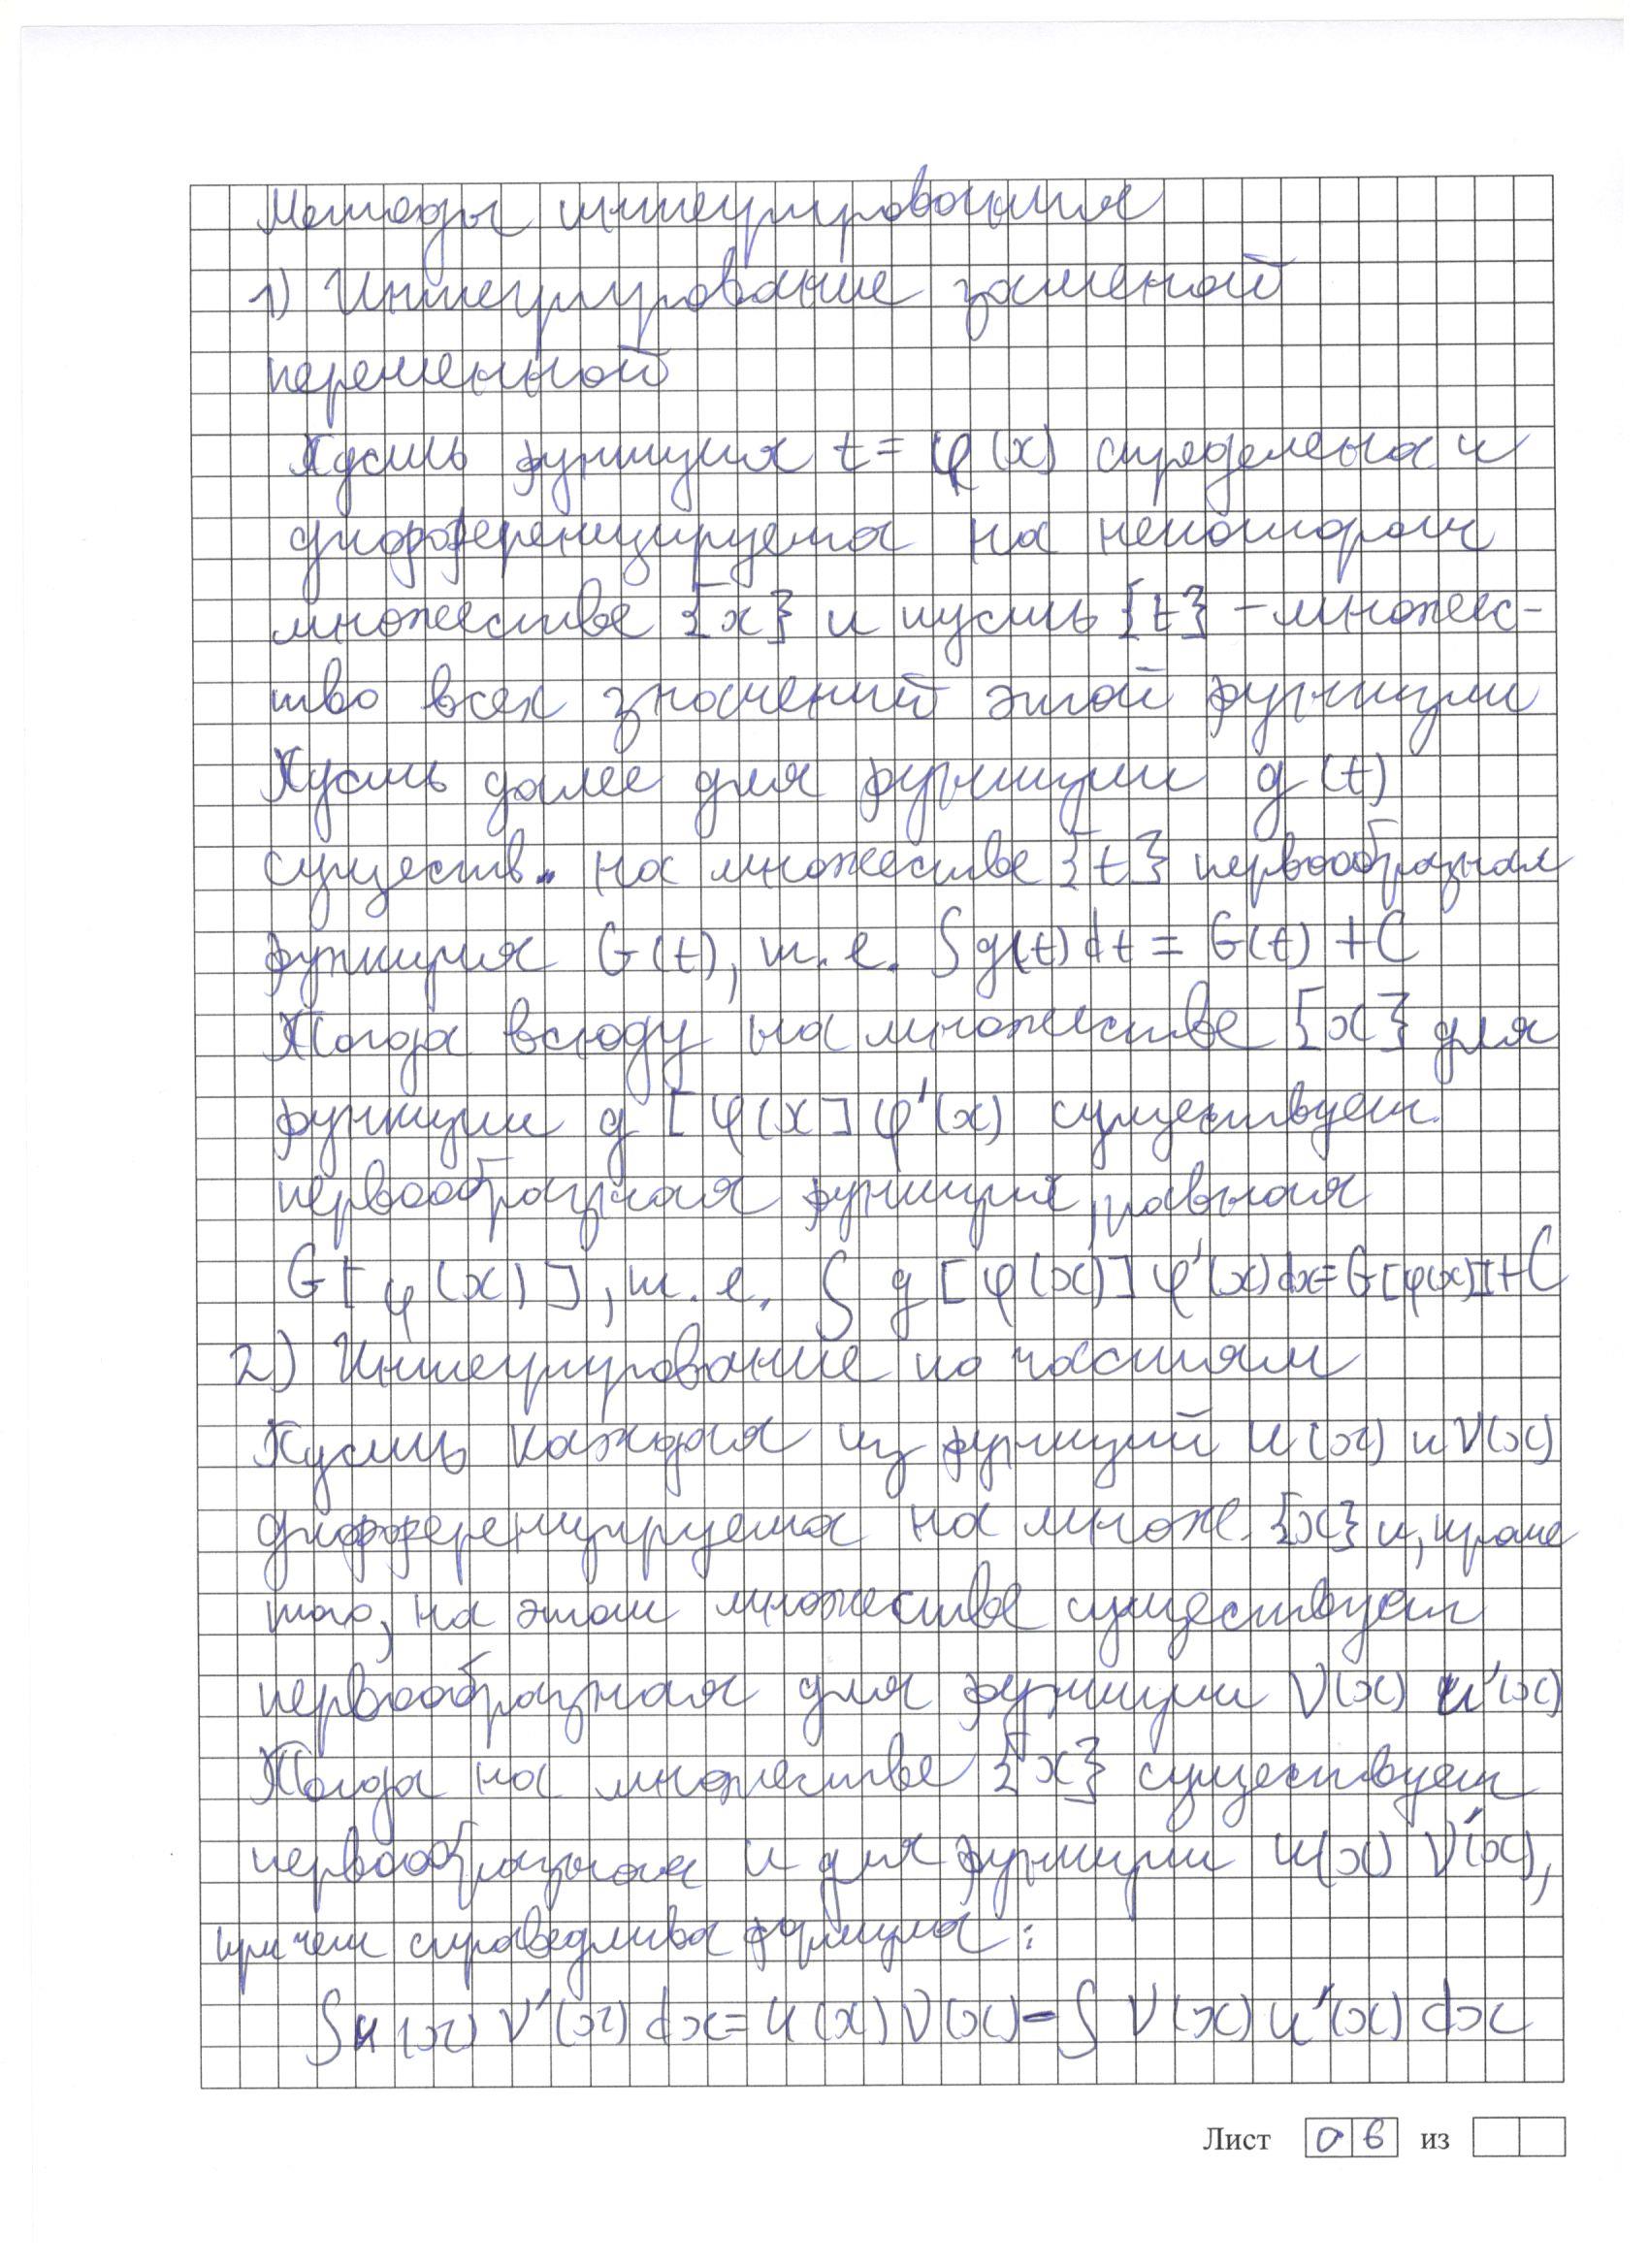 Методы интегрирования
1) Интегрирование заменой
переменной
Пусть функция t = φ(x) определена и
дифференцируема на некотором
множестве {x} и пусть {t} - множес-
тво всех значений этой функции
Пусть далее для функции g(t)
существ. на множестве {t} первообразная
функция G(t), т.е. ∫g(t)dt = G(t) + C
Тогда всюду на множестве {x} для
функции g[φ(x]φ'(x) существует
первообразная функция, равная
G[φ(x)], т.е. ∫ g[φ(x)]φ'(x)dx=G[φ(x)]+C
2) Интегрирование по частям
Пусть каждая из функций u(x) и V(x)
дифференцируема на множ. {x} и, кроме
того, на этом множестве существует
первообразная для функции V(x) u'(x)
Тогда на множестве {x} существует
первообразная и для функции u(x) V'(x),
причем справедлива формула:
∫u(x) V'(x) dx = u(x) V(x) - ∫ V(x) u'(x) dx
Лист 06 из